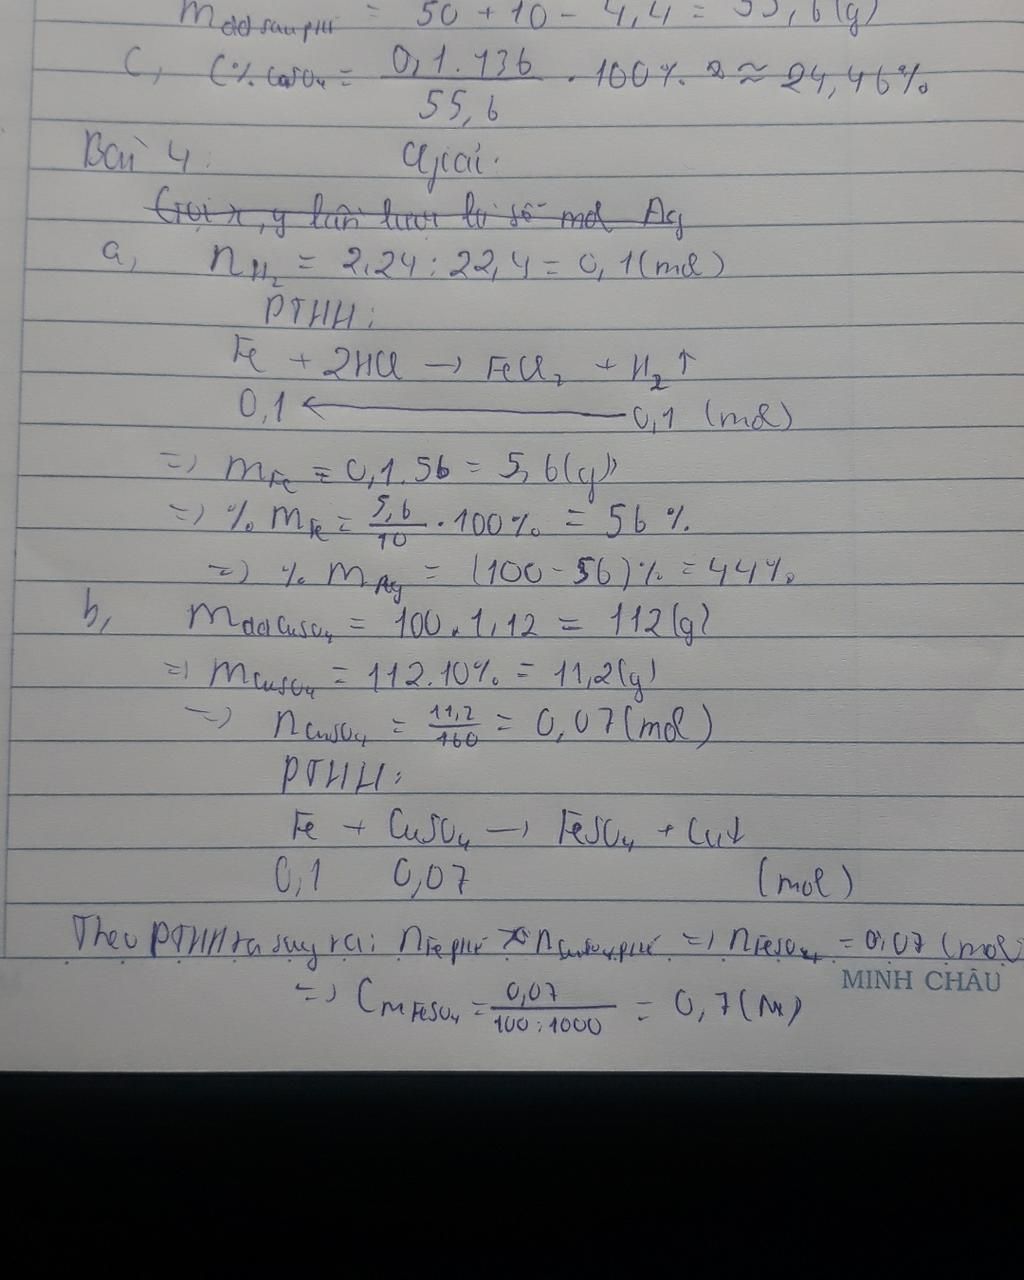 m dd sau pứ = 50 + 10 - 4,4 = 55,6 (g)
c, C% CaSO₄ = 0,1.136 / 55,6 . 100% ≈ 24,46%
Bài 4: Giải:
Gọi x, y lần lượt là số mol Ag
a, nH₂ = 2,24 : 22,4 = 0,1 (mol)
PTHH:
Fe + 2HCl → FeCl₂ + H₂ ↑
0,1 ← 0,1 (mol)
=) mFe = 0,1.56 = 5,6 (g)
=) % mFe = 5,6/10 . 100% = 56 %
=) % mAg = (100 - 56)% = 44%
b, m dd CuSO₄ = 100.1,12 = 112 (g)
=) mCuSO₄ = 112.10% = 11,2 (g)
=) nCuSO₄ = 11,2/160 = 0,07 (mol)
PTHH:
Fe + CuSO₄ → FeSO₄ + Cu↓
0,1 0,07 (mol)
Theo PTHH ta suy ra: nFe pứ nCuSO₄ pứ =) nFeSO₄ = 0,07 (mol)
MINH CHÂU
=) CM FeSO₄ = 0,07 / 100:1000 = 0,7 (M)